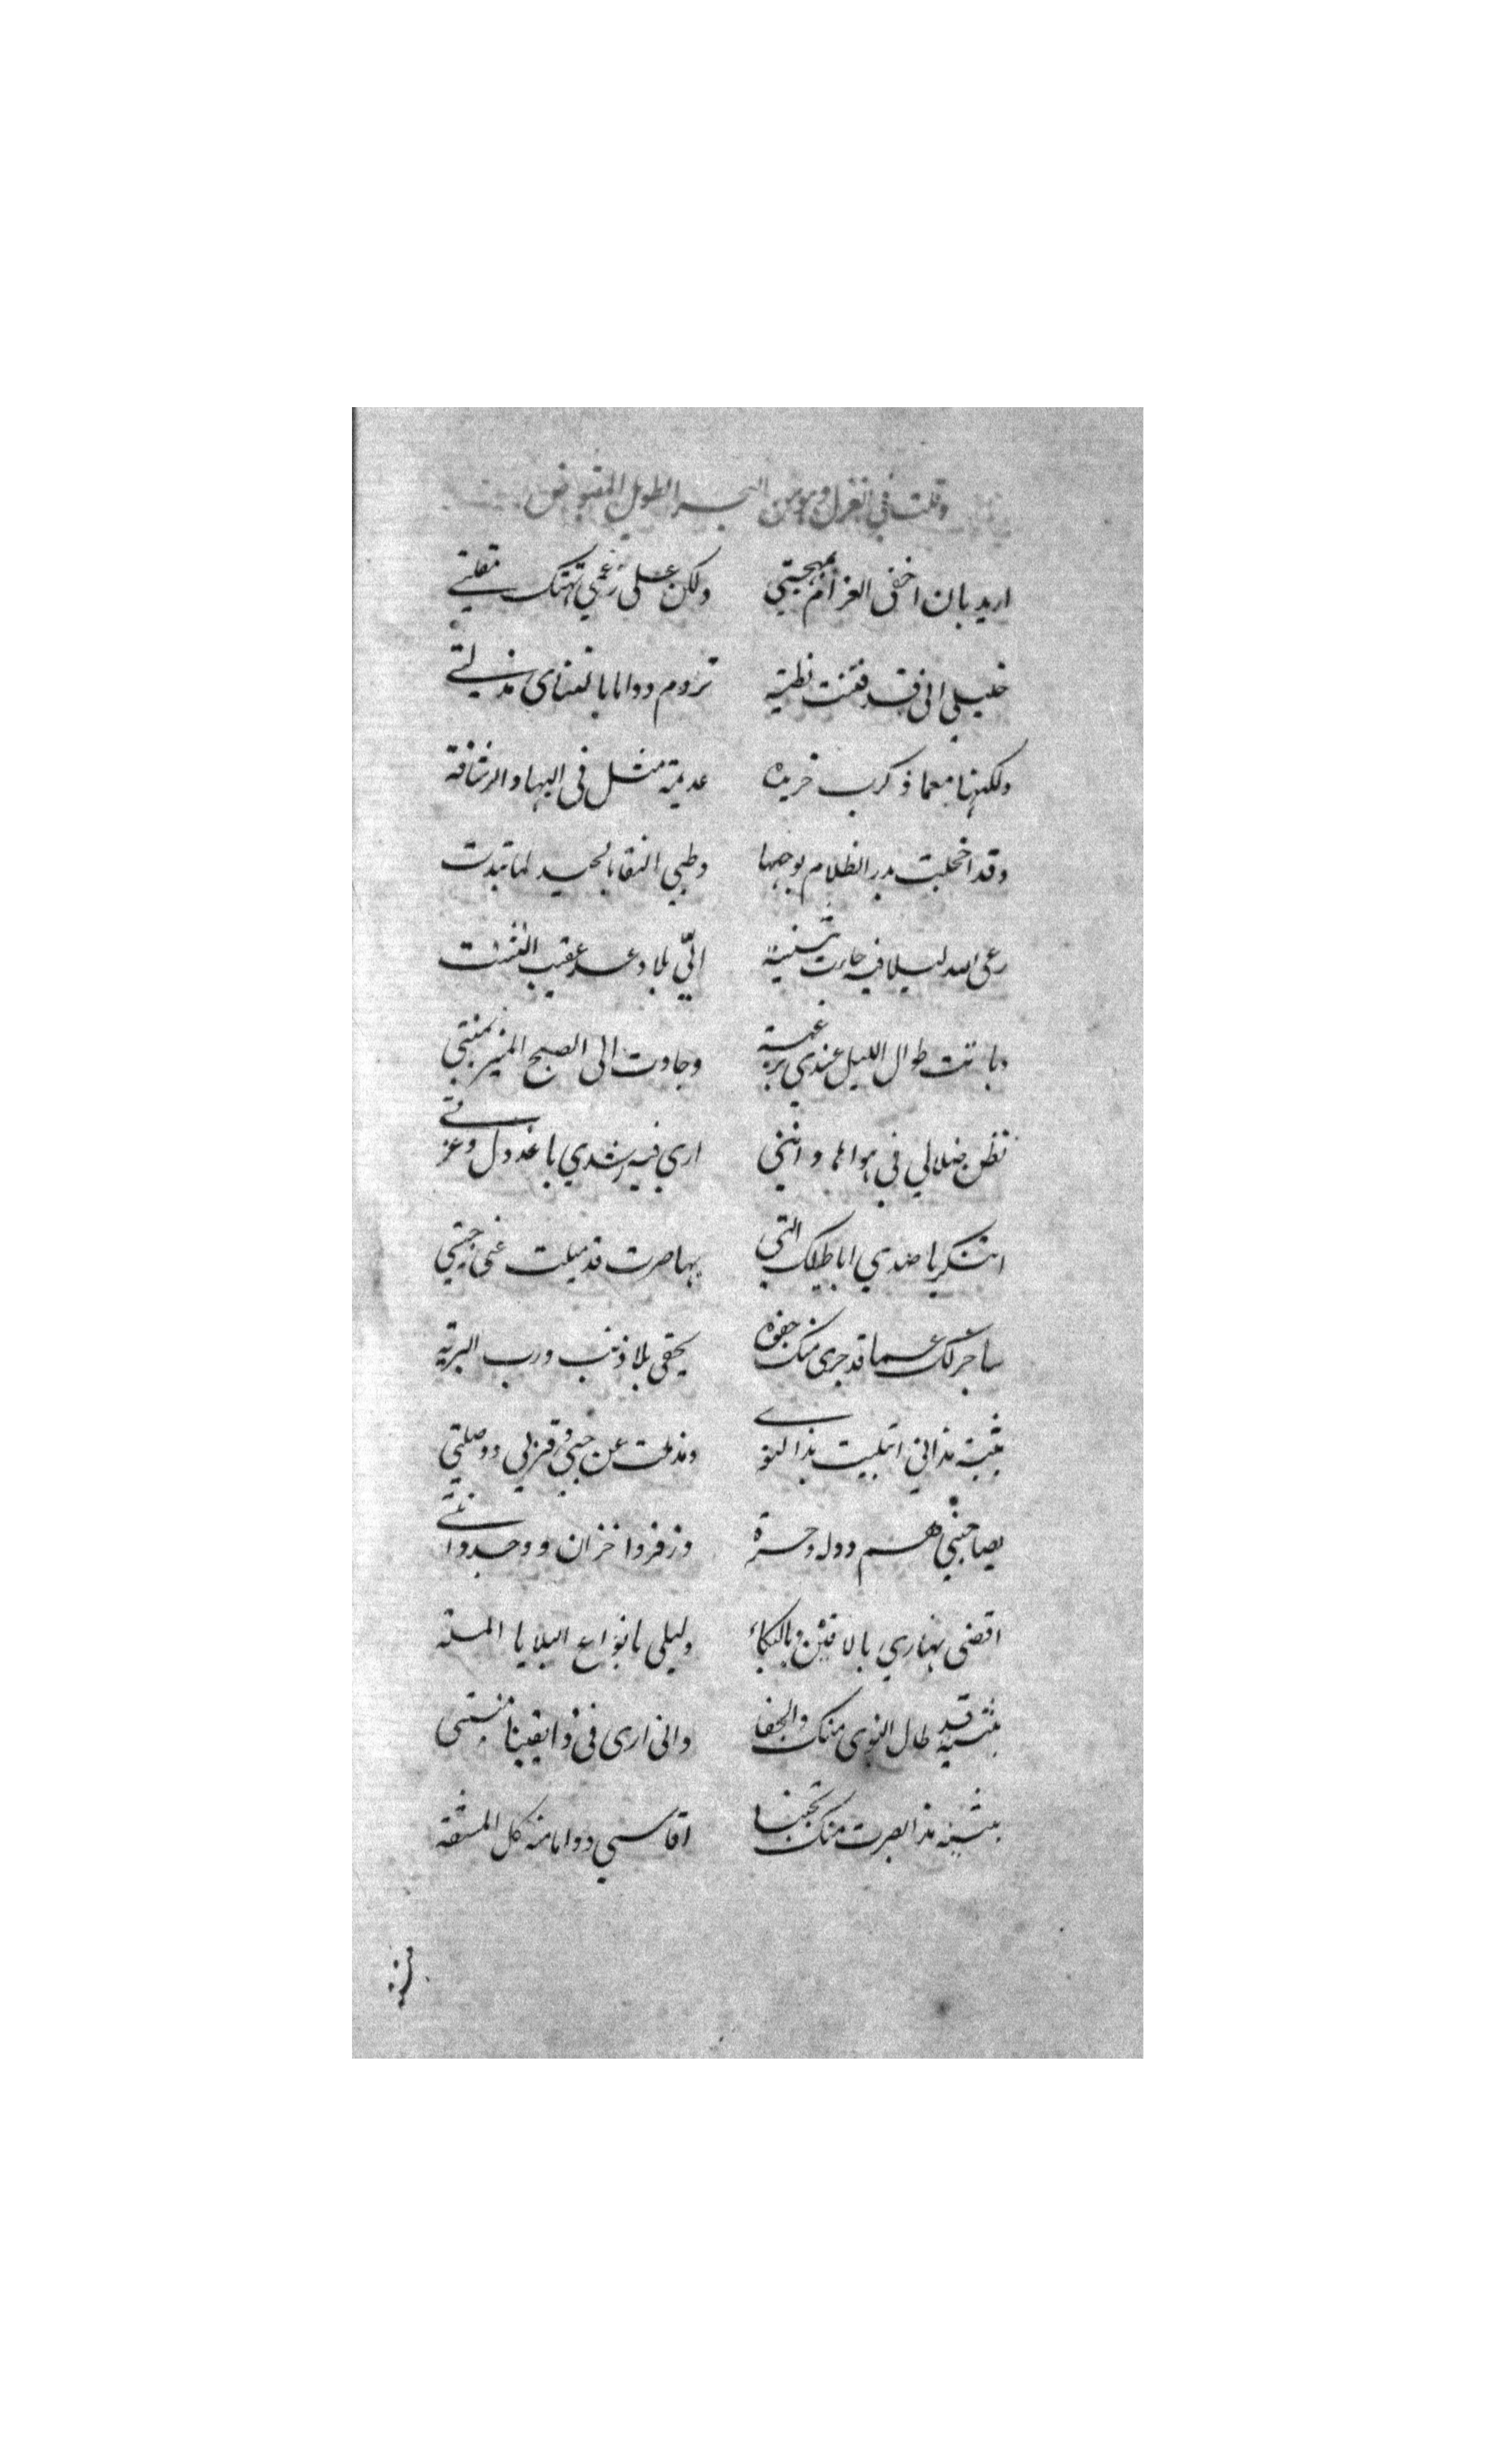 وقلت في الغزل وهو من البحر الطويل المقبوض
اريد بان اخفي الغرام بمهجتي ولكن على رغمي تهتك مقلتي
خليلي اني قد فتنت بظبية تروم دواما بالتنائ مذلتي
ولكنها معما ذكرت خريده عديمة مثل في البها والرشاقة
وقد اخجلت بدر الظلام بوجهها وظبي النقا بالجيد لما تبدت
رعى الله ليلا فيه جاءت بثينة اليّ بلا وعد عقيب التشتت
وباتت طوال الليل عندي برغبة وجادت الى الصبح المنير بمنيتي
تظن ضلالي في هواها وانني ارى فيه رشدي يا عذول وعزتي
اتنكر يا ضدي اباطيلك التي بها صرت قد ميلت عني حبتي
ساخبرك عما قد جرى منك جفوه بحقي بلا ذنب ورب البرية
بثينة مذ اني ابتليت بذا النوى ومذ ملت عن حبي وقربي ووصلتي
يصاحبني هم ووله وحسرة وزفر واحزان ووجد وانتي
اقضي نهاري بالانين وبالبكاء وليلي بانواع البلايا الملمة
بثينة قد طال النوى منك والجفا واني ارى في ذا يقينا منيتي
بثينة مذ ابصرت منك تجنبا اقاسي دواما منه كل المشقة